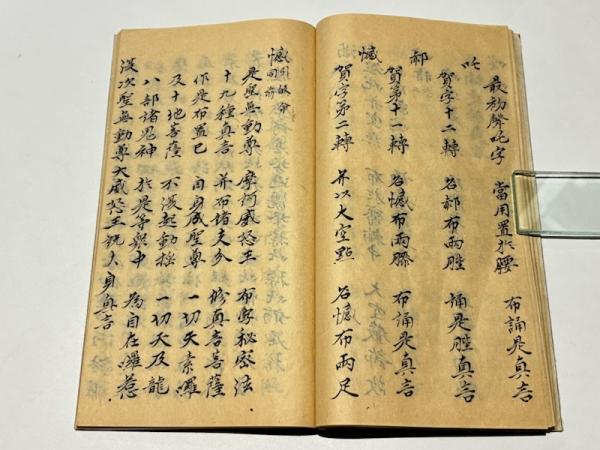 最初聲吒字 當用置於腰 布誦是真言
吒
賀字十二轉 名郝布兩脛 誦是脛真言
郝
賀第十一轉 名憾布兩膝 布誦是真言
憾
賀字第二轉 并以大空點 名憾布兩足
憾引
同前
是聖無動尊 摩訶威怒王 布字秘密法
十九種真言 并布諸支分 修真言菩薩
作是布置已 自身成聖尊 一切天素羅
及十地菩薩 不復起動搖 一切天及龍
八部諸鬼神 於是等眾中 為自在羅惹
復次聖無動尊大威怒王說大身真言